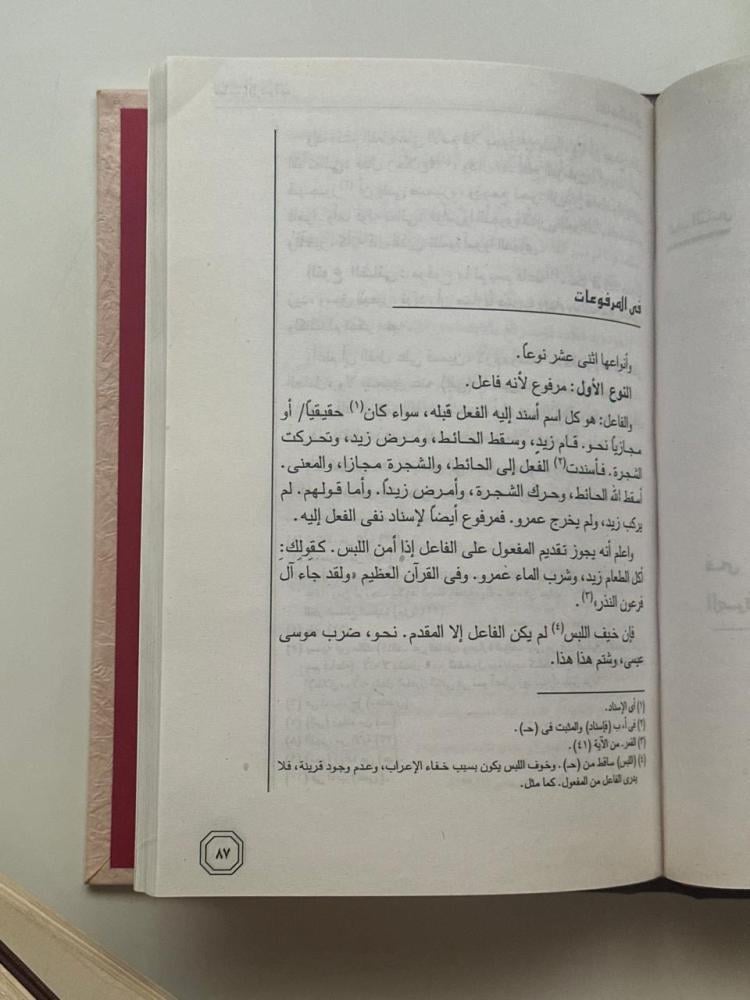 فى المرفوعات
وأنواعها اثنى عشر نوعاً.
النوع الأول: مرفوع لأنه فاعل.
والفاعل: هو كل اسم أسند إليه الفعل قبله، سواء كان(١) حقيقياً/ أو
مجازياً نحو. قام زيد، وسقط الحائط، ومرض زيد، وتحركت
الشجرة. فأسندت(٢) الفعل إلى الحائط، والشجرة مجازا، والمعنى.
أسقط الله الحائط، وحرك الشجرة، وأمرض زيداً. وأما قولهم. لم
يركب زيد، ولم يخرج عمرو. فمرفوع أيضاً لإسناد نفى الفعل إليه.
واعلم أنه يجوز تقديم المفعول على الفاعل إذا أمن اللبس. كقولك:
أكل الطعام زيد، وشرب الماء عمرو. وفى القرآن العظيم «ولقد جاء آل
فرعون النذر»(٣).
فإن خيف اللبس(٤) لم يكن الفاعل إلا المقدم. نحو، ضرب موسى
عيسى، وشتم هذا هذا.
(١) أى الإسناد.
(٢) فى أ، ب (فإسناد) والمثبت فى (حـ).
(٣) القمر. من الآية (٤١).
(٤) (اللبس) ساقط من (حـ). وخوف اللبس يكون بسبب خفاء الإعراب، وعدم وجود قرينة، فلا
يدرى الفاعل من المفعول. كما مثل.
٨٧